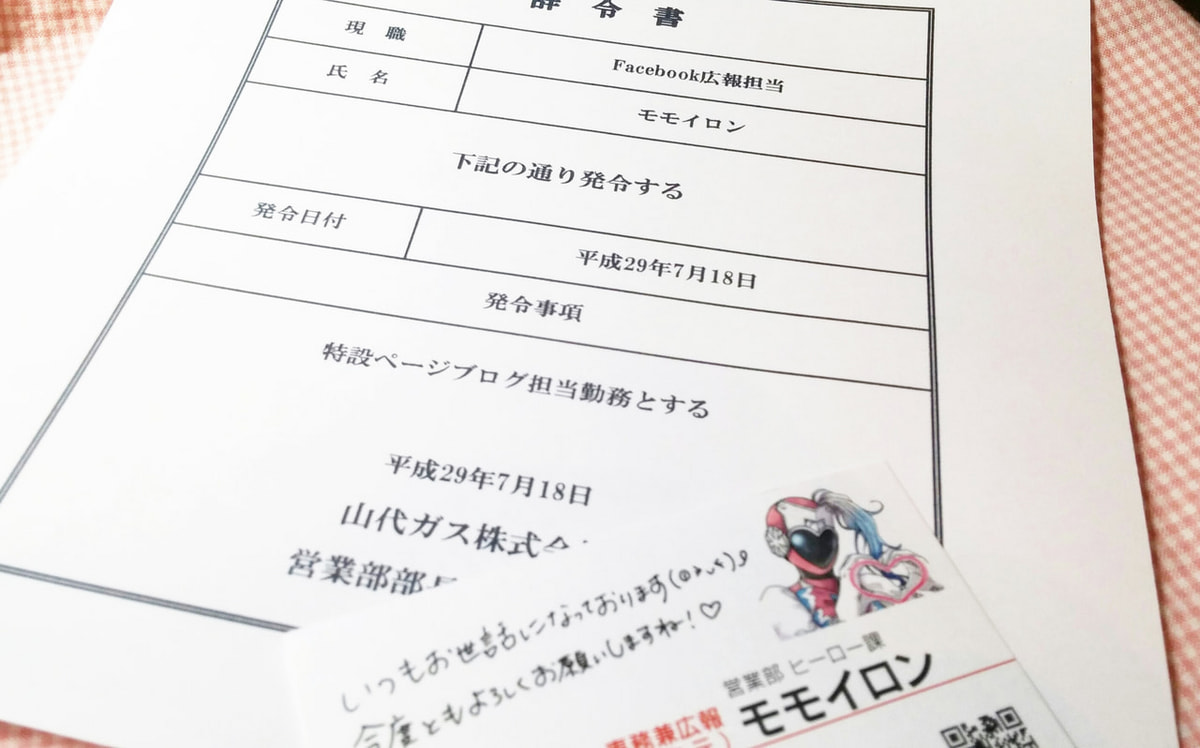 辞令書
現職 Facebook広報担当
氏名 モモイロン
下記の通り発令する
発令日付 平成29年7月18日
発令事項
特設ページブログ担当勤務とする
平成29年7月18日
山代ガス株式
営業部部
いつもお世話になっております
今度ともよろしくお願いしますね!♡
営業部 ヒーロー課
モモイロン
兼広報